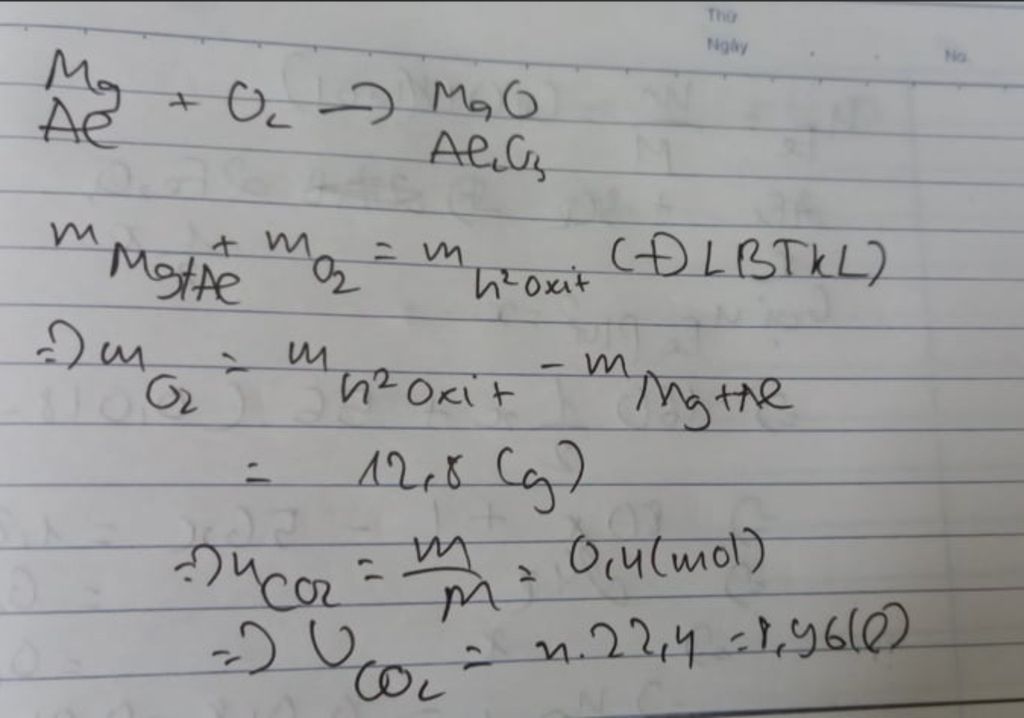 Thứ
Ngày
No.
Mg
Al + O₂ → MgO
Al₂O₃
m Mg+Al + m O₂ = m h² oxit (ĐLBTKL)
=> m O₂ = m h² oxit - m Mg+Al
= 12,8 (g)
=> n CO₂ = m/M = 0,4 (mol)
=> V CO₂ = n.22,4 = 8,96 (l)